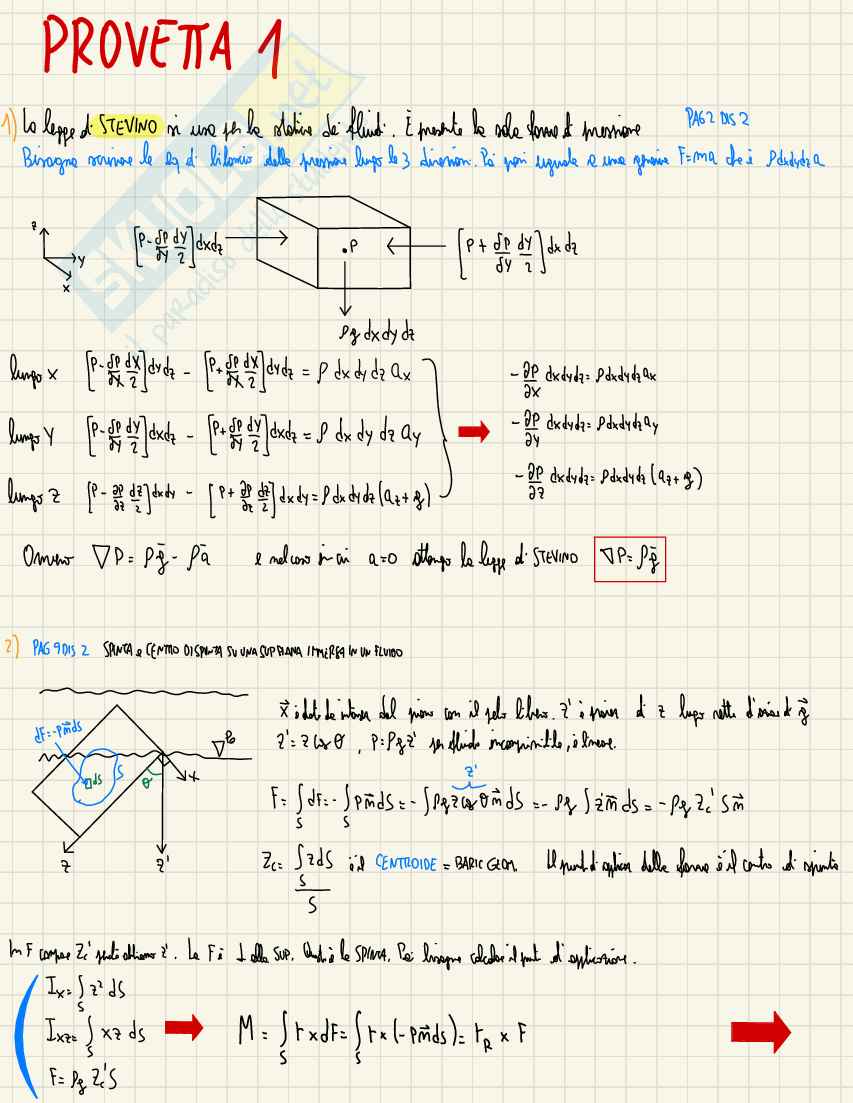 PROVETTA 1
1) La legge di STEVINO si usa per la statica dei fluidi. È presente la sola forza di pressione PAG 2 DIS 2
Bisogna scrivere le eq di bilancio delle pressione lungo le 3 direzioni. Poi poni uguale a una generica F=ma che è ρdxdydz a
SKUOLA.net
il paradiso dello studente
z y x
[P-∂P/∂Y dY/2]dxdz
•P
[P+∂P/∂Y dY/2]dxdz
ρg dxdydz
lungo X [P-∂P/∂X dX/2]dydz - [P+∂P/∂X dX/2]dydz = ρ dx dy dz ax
-∂P/∂x dxdydz = ρdxdydz ax
lungo Y [P-∂P/∂Y dY/2]dxdz - [P+∂P/∂Y dY/2]dxdz = ρ dx dy dz ay
-∂P/∂y dxdydz = ρdxdydz ay
lungo Z [P-∂P/∂z dz/2]dxdy - [P+∂P/∂z dz/2]dxdy = ρdxdydz(az+g)
-∂P/∂z dxdydz = ρdxdydz(az+g)
Ovvero ∇P = ρḡ - ρā e nel caso in cui a=0 ottengo la legge di STEVINO ∇P = ρḡ
2) PAG 9 DIS 2 SPINTA e CENTRO DI SPINTA SU UNA SUP PIANA IMMERSA IN UN FLUIDO
dF=-Pn⃗ds
S
ds
θ
x
z
z'
x⃗ è dato da intersez del piano con il pelo libero. z' è proiez di z lungo retta d'azione di g⃗
z'= z cos θ, P=ρgz' per fluido incomprimibile, è lineare.
z'
F = ∫S dF = -∫S Pn⃗dS = -∫ρgz cos θ n⃗ dS = -ρg ∫z'n⃗ ds = -ρg Zc' S n⃗
Zc = ∫S z dS / S è il CENTROIDE = BARIC GEOM. Il punto di applicaz della forza è il centro di spinta
In F compare Zc' perché abbiamo z'. La F è ⊥ alla SUP. Questa è la SPINTA. Poi bisogna calcolare il punt d'applicazione.
Ix = ∫S z² dS
Ixz = ∫S xz ds
M = ∫S r×dF = ∫S r×(-Pn⃗ds) = rR × F
F = ρg Zc' S